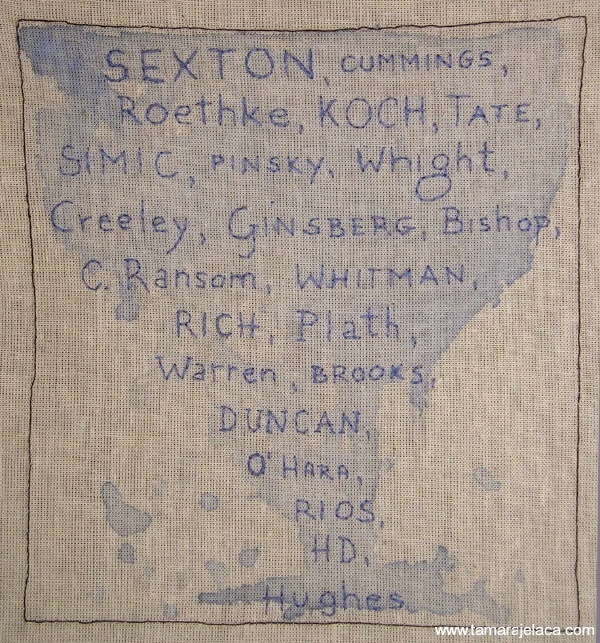 SEXTON, CUMMINGS,
Roethke, KOCH, TATE,
SIMIC, PINSKY, Whight,
Creeley, GINSBERG, Bishop,
C. Ransom, WHITMAN,
RICH, Plath,
Warren, BROOKS,
DUNCAN,
O'HARA,
RIOS,
HD,
Hughes
www.tamarajelaca.com